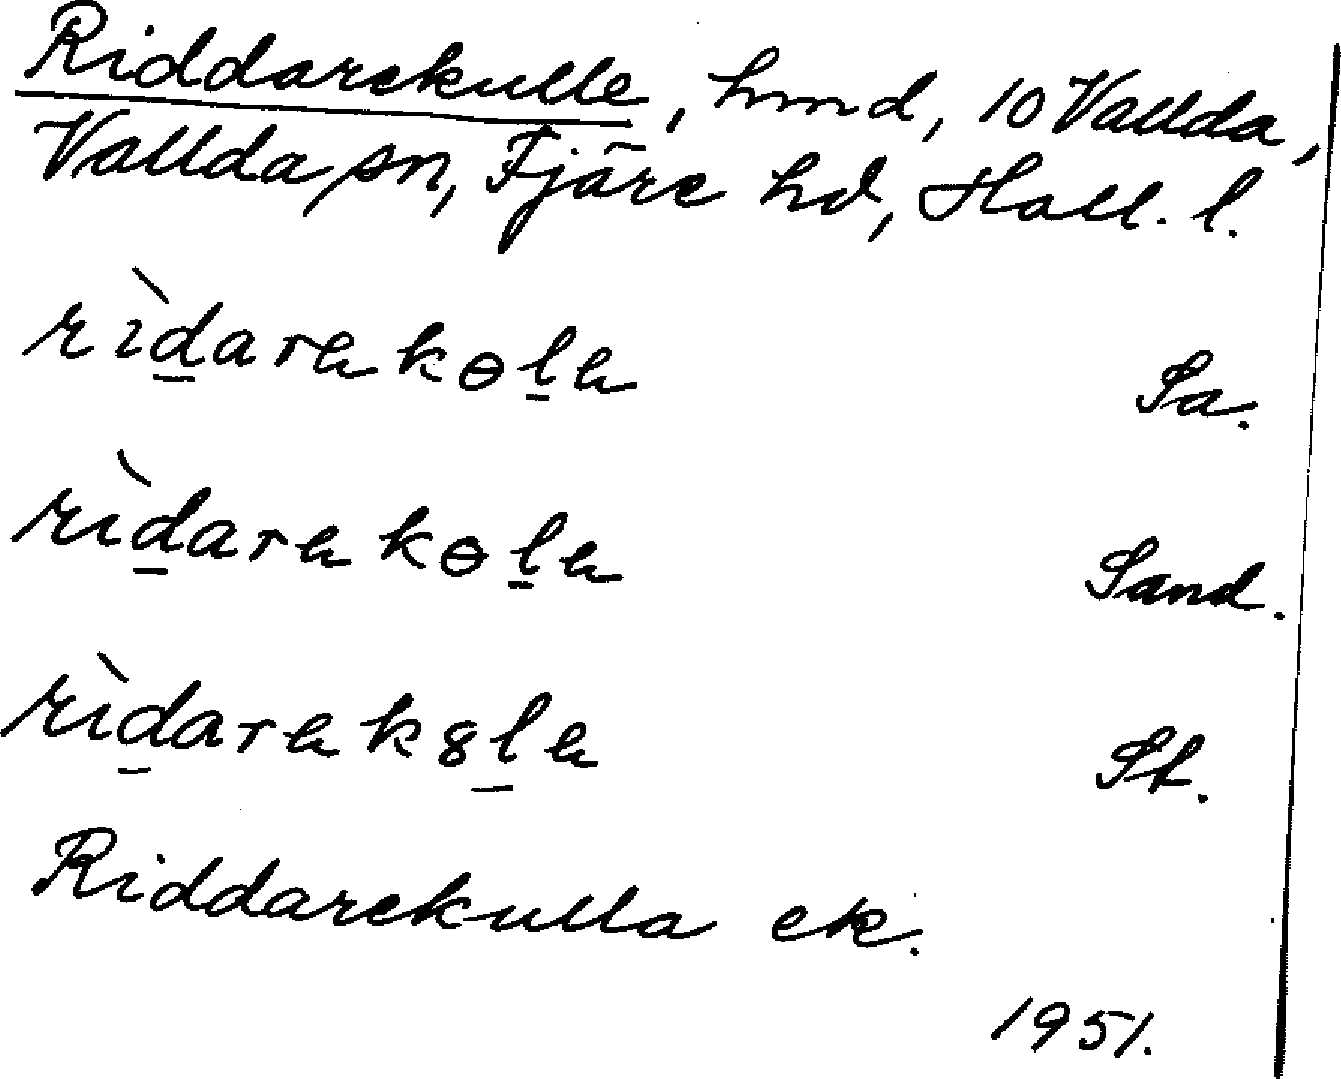 Riddarekulle, hmd, 10 Vallda,
Vallda sn, Fjäre hd, Hall. l.
rìd̲arəkɵl̲ə Sa.
rìd̲arəkɵl̲ə Sand.
rìd̲arək8l̲ə St.
Riddarekulla ek.
1951.